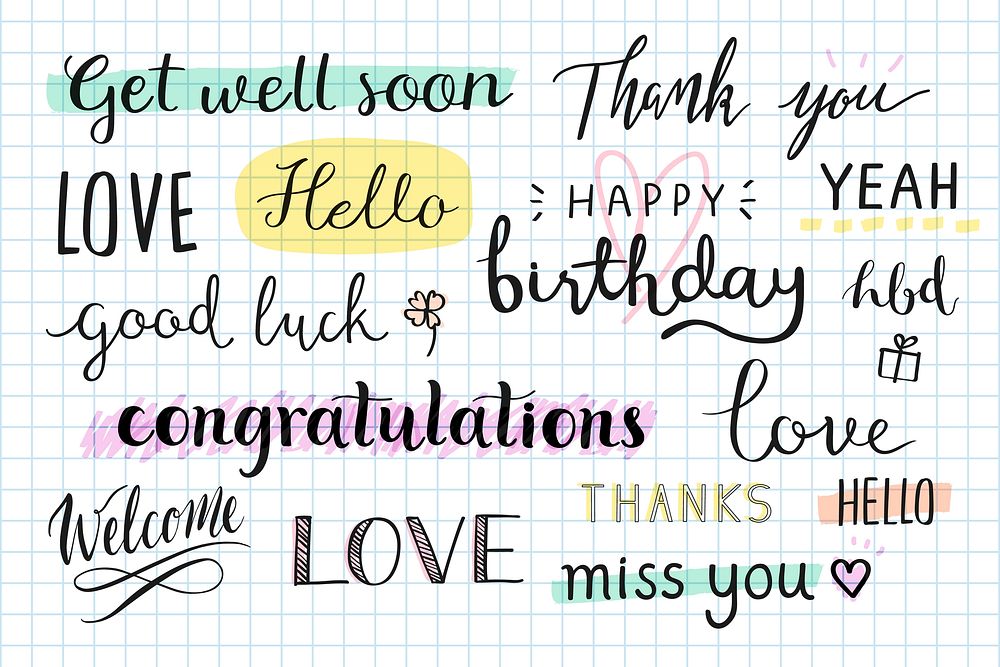 Get well soon
Thank you
LOVE
Hello
HAPPY
birthday
YEAH
good luck
hbd
congratulations
love
Welcome
LOVE
THANKS
HELLO
miss you